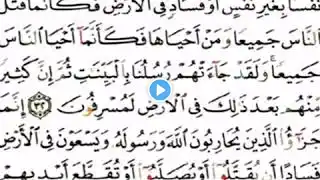 نَفْسًا بِغَيْرِ نَفْسٍ أَوْ فَسَادٍ فِى ٱلْأَرْضِ فَكَأَنَّمَا قَتَلَ
ٱلنَّاسَ جَمِيعًا وَمَنْ أَحْيَاهَا فَكَأَنَّمَآ أَحْيَا ٱلنَّاسَ
جَمِيعًاۚ وَلَقَدْ جَآءَتْهُمْ رُسُلُنَا بِٱلْبَيِّنَـٰتِ ثُمَّ إِنَّ كَثِيرًا
مِّنْهُم بَعْدَ ذَٰلِكَ فِى ٱلْأَرْضِ لَمُسْرِفُونَ ٣٢ إِنَّمَا
جَزَٰٓؤُا۟ ٱلَّذِينَ يُحَارِبُونَ ٱللَّهَ وَرَسُولَهُۥ وَيَسْعَوْنَ فِى ٱلْأَرْضِ
فَسَادًا أَن يُقَتَّلُوٓا۟ أَوْ يُصَلَّبُوٓا۟ أَوْ تُقَطَّعَ أَيْدِيهِمْ